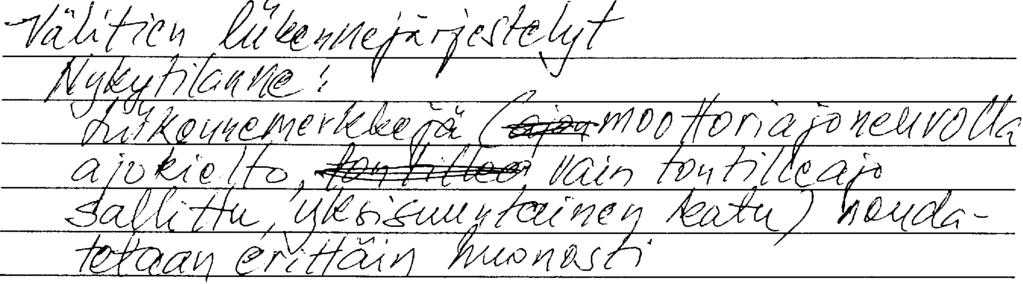 Välitien liikennejärjestelyt
Nykytilanne:
Liikennemerkkejä (ajon moottoriajoneuvolla
ajokielto, tontilleo vain tontilleajo
sallittu, yksisuuntainen katu) nouda-
tetaan erittäin huonosti